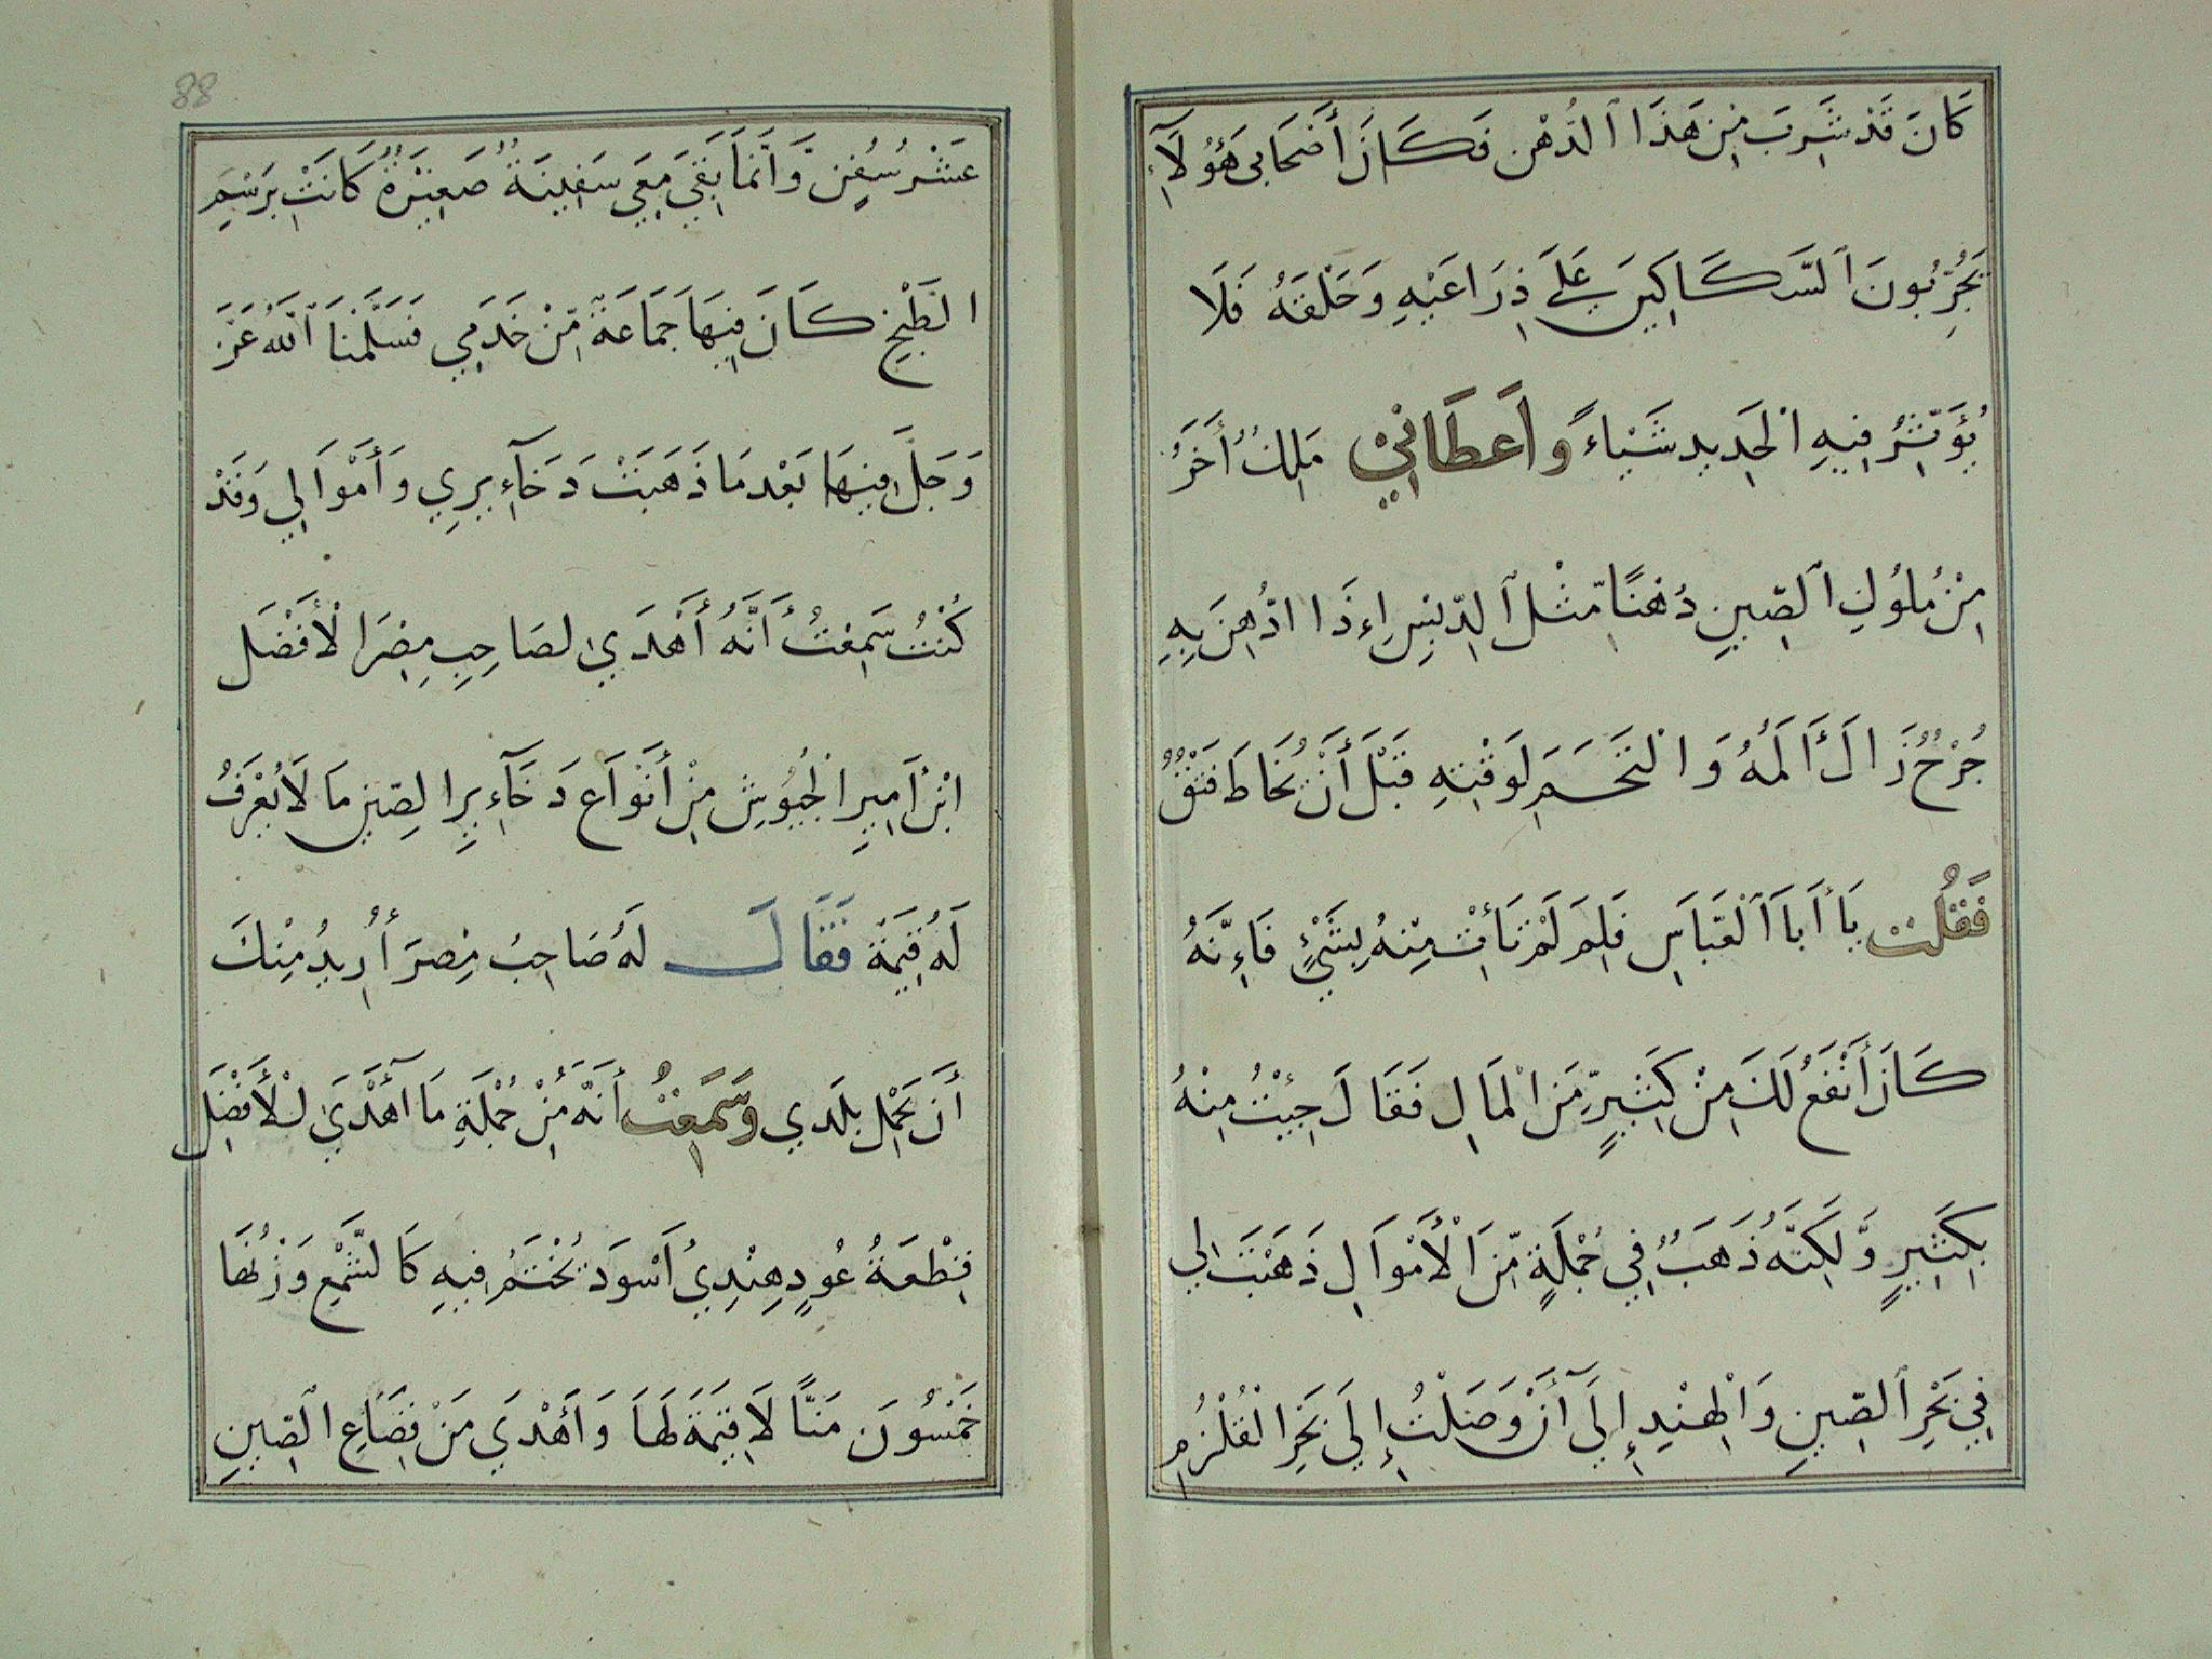 كَانَ قَدْ شَرِبَ مِنْ هَذَا ٱلدُّهْنِ فَكَانَ أَصْحَابِي هَؤُلَآءِ
يُجَرِّبُونَ ٱلسَّكَاكِينَ عَلَى ذِرَاعَيْهِ وَحَلْقَهُ فَلَا
يُؤَثِّرُ فِيهِ الْحَدِيد شَيْاءً وَاَعطَانِيْ مَلِكٌ أَخَرُ
مِنْ مُلُوكِ ٱلصِّينِ دُهْنًا مِّثْلَ ٱلدِّبْسِ إِذَا ادُّهِنَ بِهِ
جُرْحٌ زَالَ أَلَمُهُ وَالْتَحَمَ لَوَقْتِهِ قَبْلَ أَنْ يُخَاطَ فَتْقٌ
فَقُلْتُ يَا أَبَا ٱلْعَبَّاسِ فَلِمَ لَمْ تَأْتِ مِنْهُ بِشَيْءٍ فَاءِنَّهُ
كَانَ أَنْفَعُ لَكَ مِنْ كَثِيرٍ مِّنَ الْمَالِ فَقَالَ جِئْتُ مِنْهُ
بِكَثِيرٍ وَّلَكِنَّهُ ذَهَبَ فِي جُمْلَةٍ مِّنَ الْأَمْوَالِ ذَهَبَتْ لِي
فِي بَحْرِ ٱلصِّينِ وَالْهِنْدِ إِلَى أَنْ وَصَلْتُ إِلَى بَحْرِ الْقُلْزُمِ
88
عَشْرُ سُفُنٍ وَّأَنَّمَا بَقِيَ مَعِي سَفِينَةٌ صَغِيْرَةٌ كَانَتْ بِرَسْمِ
الطَّبْخِ كَانَ فِيهَا جَمَاعَةٌ مِّنْ خَدَمِي فَسَلَّمَنَا ٱللَّهُ عَزَّ
وَجَلَّ فِيهَا بَعْدَ مَا ذَهَبَتْ دَخَآءِيرِي وَأَمْوَالِي وَقَدْ
كُنْتُ سَمِعْتُ أَنَّهُ أَهْدَي لصَاحِبِ مِصْرَ الْأَفْضَل
ابْنِ أَمِيرِ الْجُيُوشِ مِنْ أَنْوَاعِ دَخَآءِيرِ الصِّينِ مَا لَا يُعْرَفُ
لَهُ قِيمَةٌ فَقَالَ لَهُ صَاحِبُ مِصْرَ أُرِيدُ مِنْكَ
أَن يَحْمِلَ بلَدِي وَسَمِعْتُ أَنَّهُ مِنْ جُمْلَةِ مَا أَهْدَيَ لْأَفْضَل
قِطْعَةُ عُودٍ هِنْدِيٍ اَسْوَد يُخْتَمُ فِيهِ كَالشَّمْعِ وَزْنُهَا
خَمْسُونَ مَنًّا لَا قِيْمَةَ لَهَا وَأَهْدَي مَنْ فَضَاعِ ٱلصِّينِ